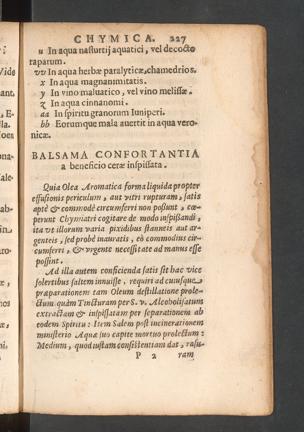 CHYMICA. 227
u In aqua nasturtij aquatici, vel decocto
raparum.
vv In aqua herbæ paralyticæ, chamedrios.
x In aqua magnanimitatis.
y In vino maluatico, vel vino melissæ.
z In aqua cinnanomi.
aa In spiritu granorum Iuniperi.
bb Eorumque mala auertit in aqua vero-
nicæ.
BALSAMA CONFORTANTIA
a beneficio ceræ inspissata.
Quia Olea Aromatica forma liquida propter
effusionis periculum, aut vitri rupturam, satis
aptè & commodè circumferri non possunt, cœ-
perunt Chymiatri cogitare de modo inspissandi,
ita vt illorum varia pixidibus stanneis aut ar-
genteis, sed probè inauratis, eò commodius cir-
cumferri, & vrgente necessitate ad manus esse
possint.
Ad illa autem conficienda satis sit hac vice
solertibus saltem innuisse, requiri ad cuiusque
præparationem tam Oleum destillatione prole-
ctum quàm Tincturam per S. v. Alcoholisatum
extractam & inspissatam per separationem ab
eodem Spiritu: Item Salem post incinerationem
ministerio Aquæ suo capite mortuo prolectum:
Medium, quod iustam consistentiam dat, rasu-
P 2 ram